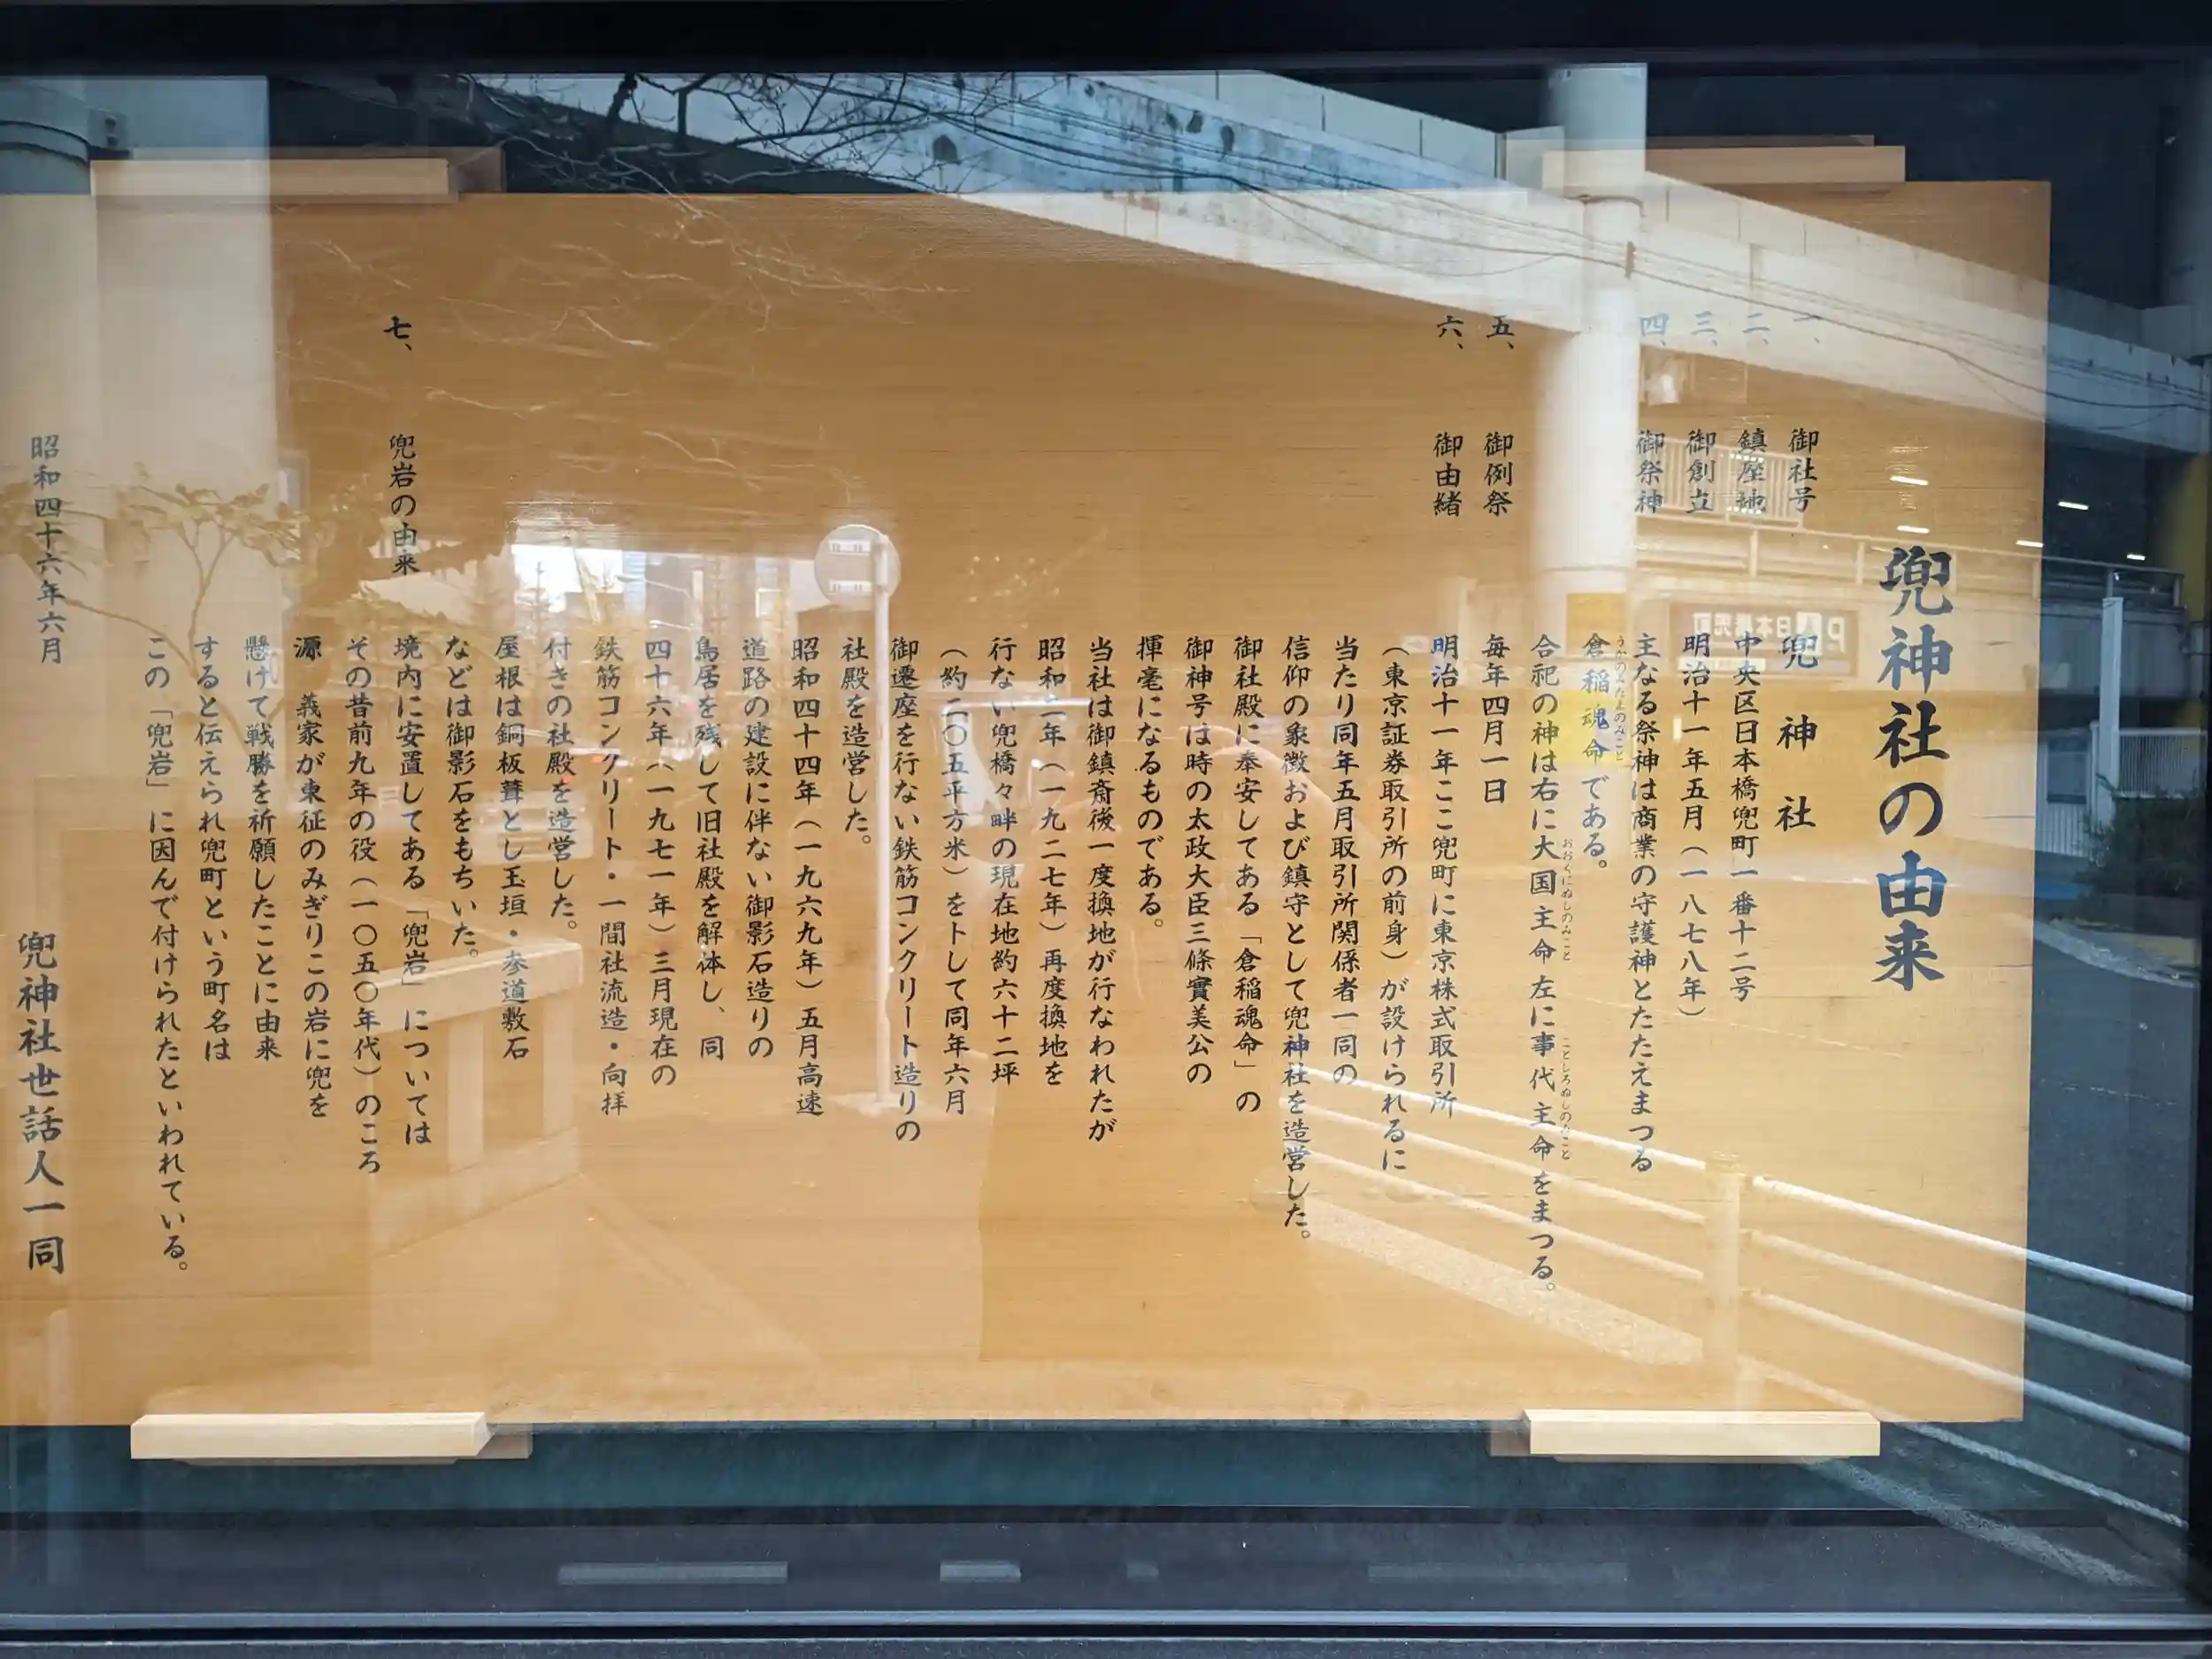 兜神社の由来
一、 御社号 兜神社
二、 鎮座地 中央区日本橋兜町一番十二号
三、 御創立 明治十一年五月(一八七八年)
四、 御祭神 主なる祭神は商業の守護神とたたえまつる
倉稲魂命である。
うかのみたまのみこと
合祀の神は右に大国主命 左に事代主命をまつる。
おおくにぬしのみこと ことしろぬしのみこと
五、 御例祭 毎年四月一日
六、 御由緒 明治十一年ここ兜町に東京株式取引所
(東京証券取引所の前身)が設けられるに
当たり同年五月取引所関係者一同の
信仰の象徴および鎮守として兜神社を造営した。
御社殿に奉安してある「倉稲魂命」の
御神号は時の太政大臣三條實美公の
揮毫になるものである。
当社は御鎮斎後一度換地が行なわれたが
昭和二年(一九二七年)再度換地を
行ない兜橋々畔の現在地約六十二坪
(約二〇五平方米)を卜して同年六月
御遷座を行ない鉄筋コンクリート造りの
社殿を造営した。
昭和四十四年(一九六九年)五月高速
道路の建設に伴ない御影石造りの
鳥居を残して旧社殿を解体し、同
四十六年(一九七一年)三月現在の
鉄筋コンクリート・一間社流造・向拝
付きの社殿を造営した。
屋根は銅板葺とし玉垣・参道敷石
などは御影石をもちいた。
七、 兜岩の由来 境内に安置してある「兜岩」については
その昔前九年の役(一〇五〇年代)のころ
源 義家が東征のみぎりこの岩に兜を
懸けて戦勝を祈願したことに由来
すると伝えられ兜町という町名は
この「兜岩」に因んで付けられたといわれている。
昭和四十六年六月
兜神社世話人一同